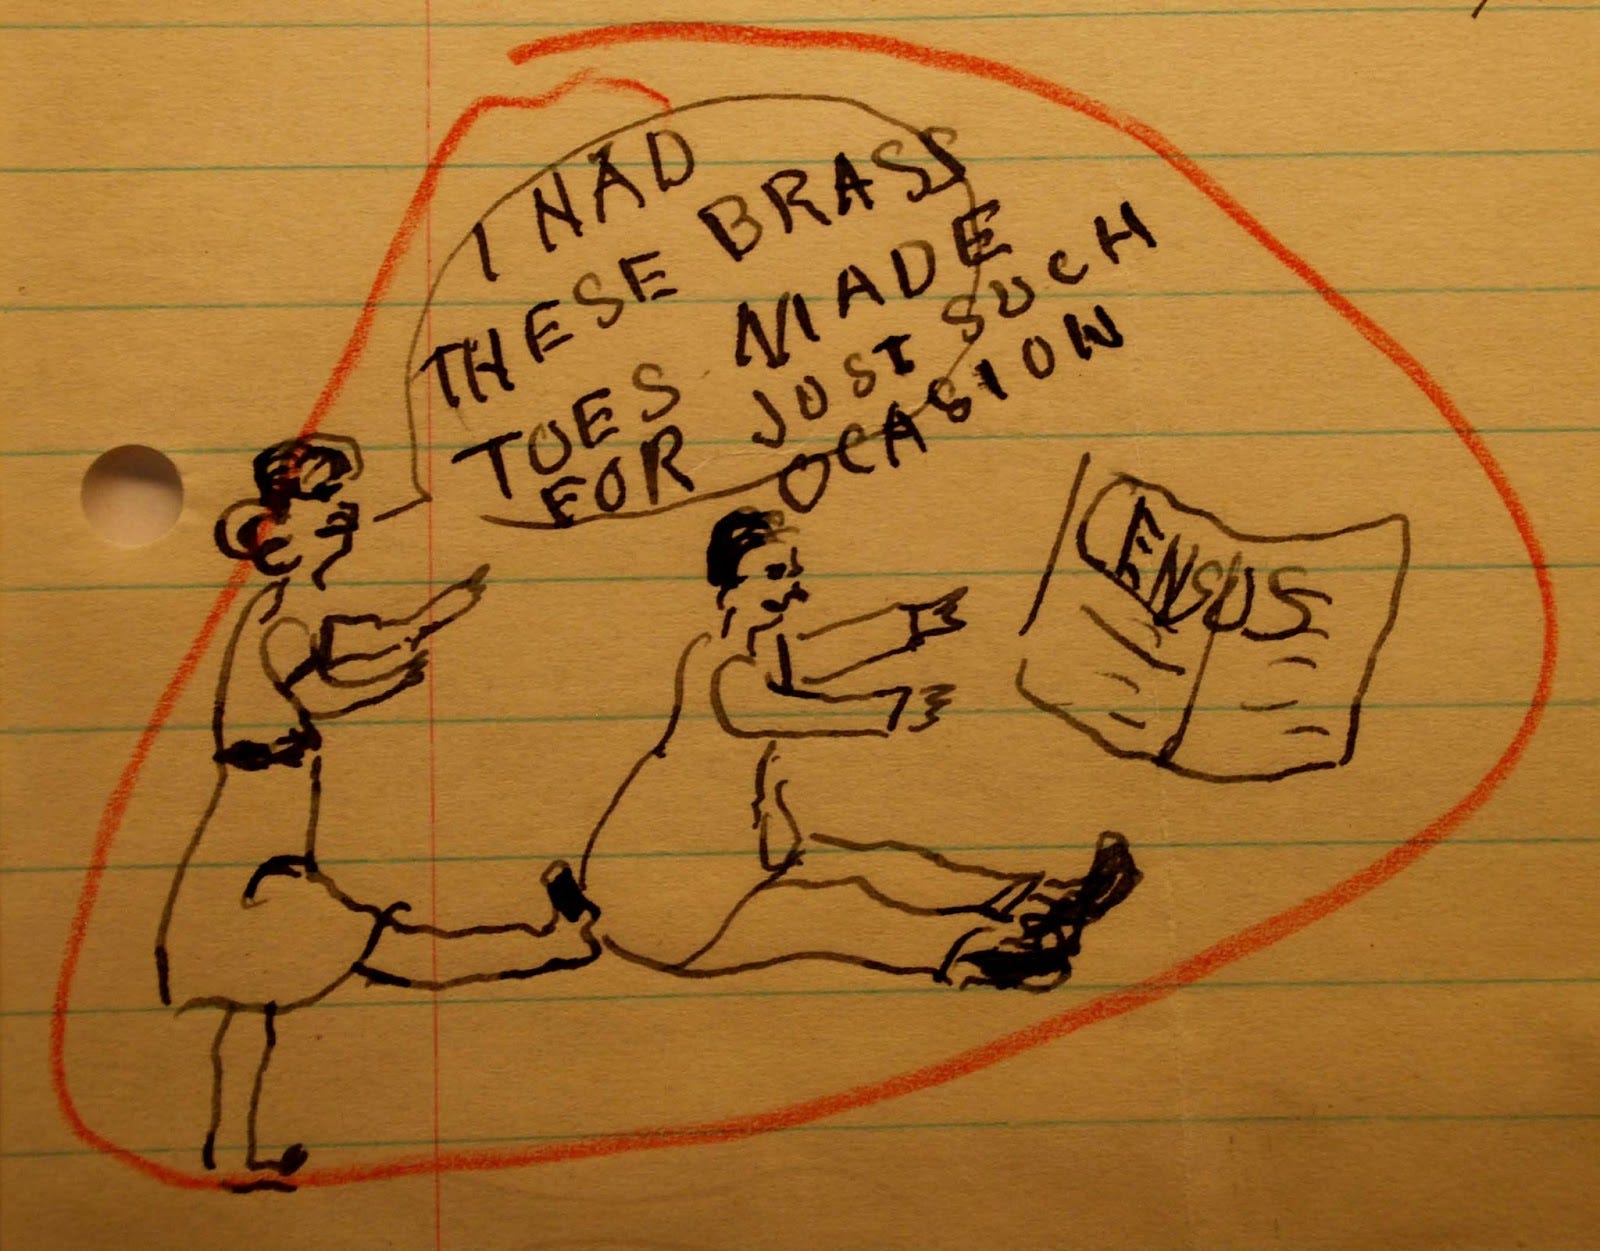 I HAD
THESE BRASS
TOES MADE
FOR JUST SUCH
OCASION
CENSUS